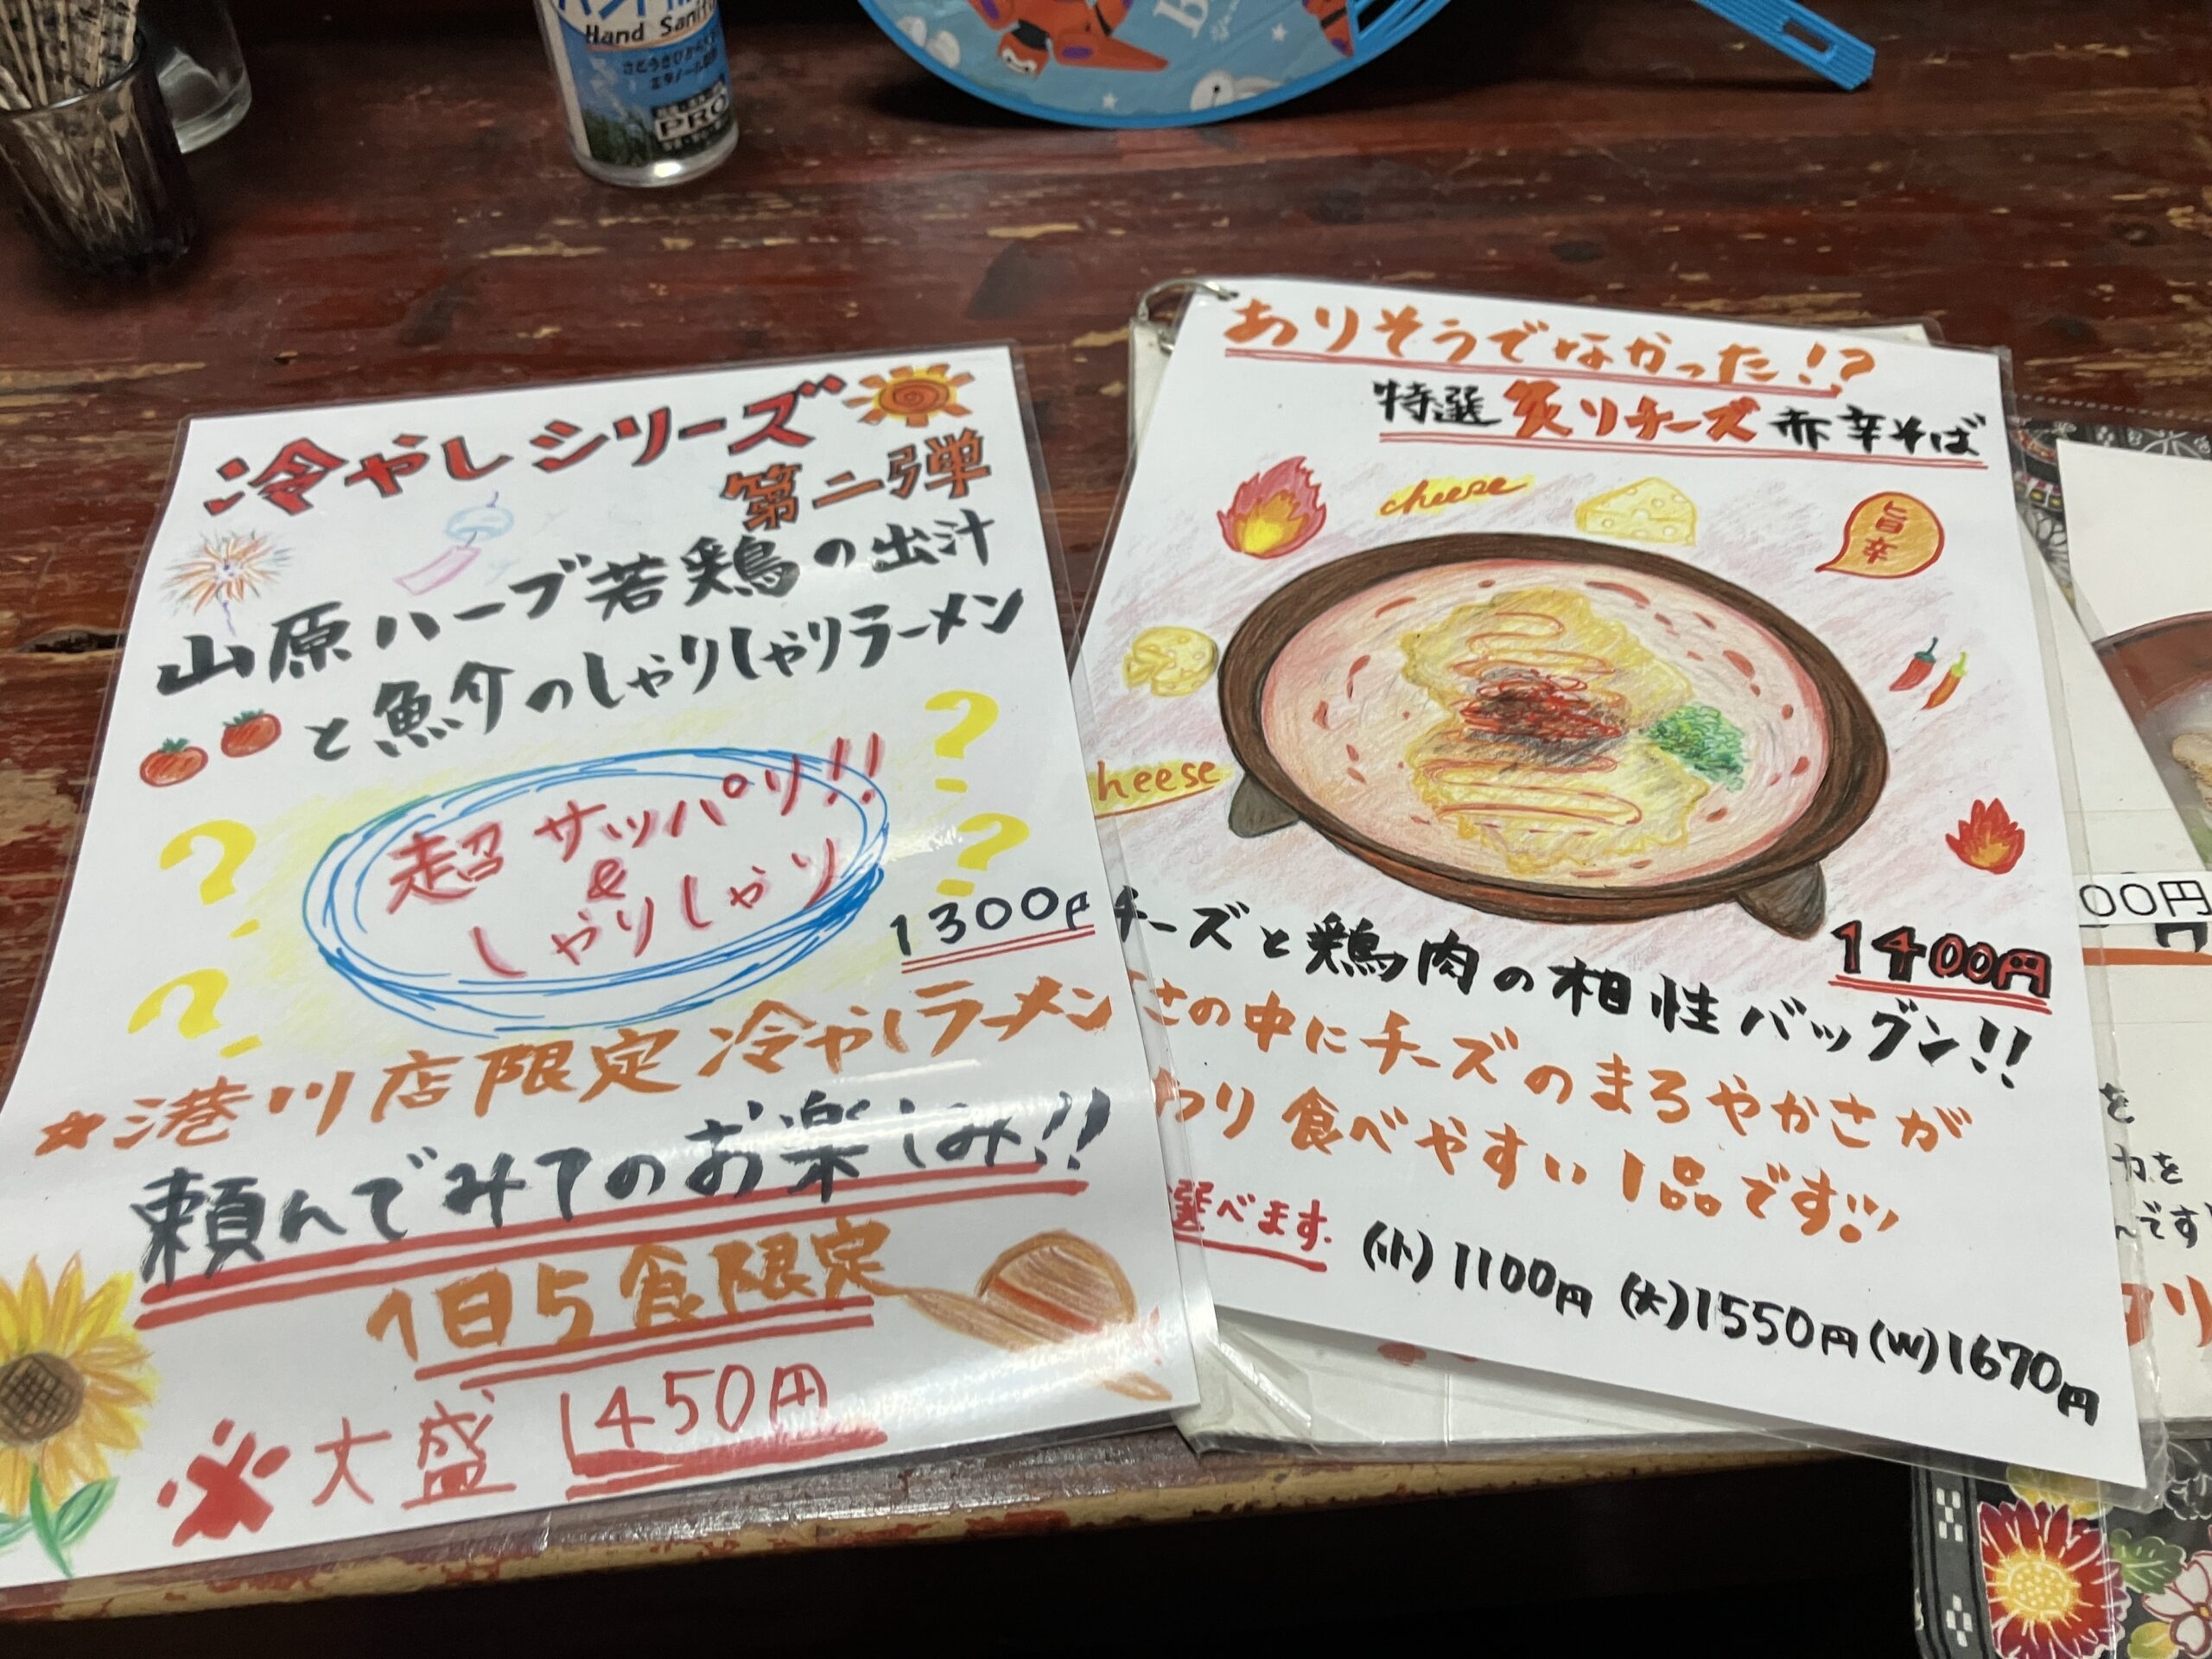 Hand Sani
さとうきびから
PRO
冷やしシリーズ
第二弾
山原ハーブ若鶏の出汁
と魚介のしゃりしゃりラーメン
超サッパリ!!
&
しゃりしゃり
1300円
☆港川店限定冷やしラーメン
頼んでみてのお楽しみ!!
1日5食限定
※大盛 1450円
ありそうでなかった!?
特選炙りチーズ赤辛そば
cheese
旨辛
heese
1400円
チーズと鶏肉の相性バッグン!!
さの中にチーズのまろやかさが
わり食べやすい1品です!!
選べます. (小)1100円 (大)1550円(W)1670円
00円
を
力を
んです